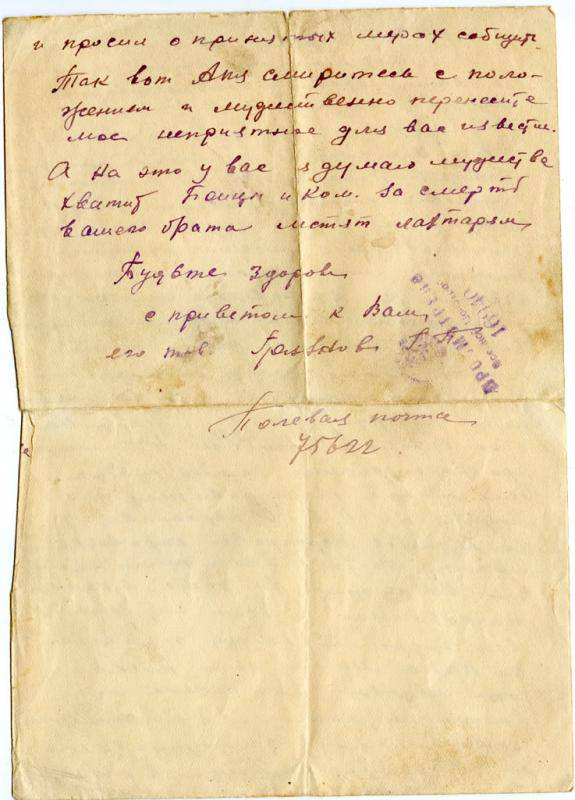 и просил о принятых мерах сообщить.
Так вот Аня смиритесь с поло-
жением и мужественно перенесите
мое неприятное для вас известие.
А на это у вас я думаю мужества
хватит Бойцы и ком. за смерть
вашего брата мстят
Будьте здоров
с приветом к Вам
его тов.
Полевая почта
75622
ПРОСМОТРЕНО
16040